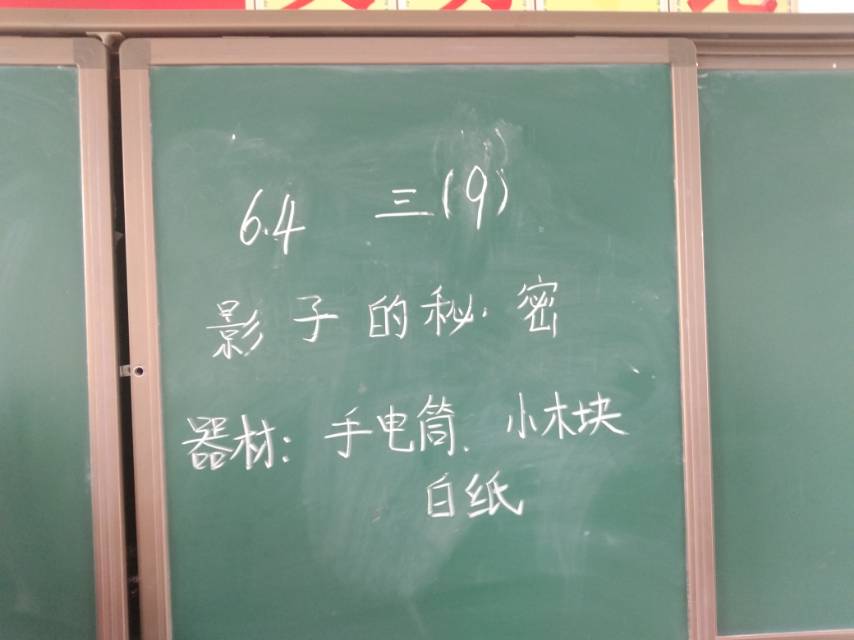 6.4 三(9)
影子的秘密
器材：手电筒、小木块
白纸